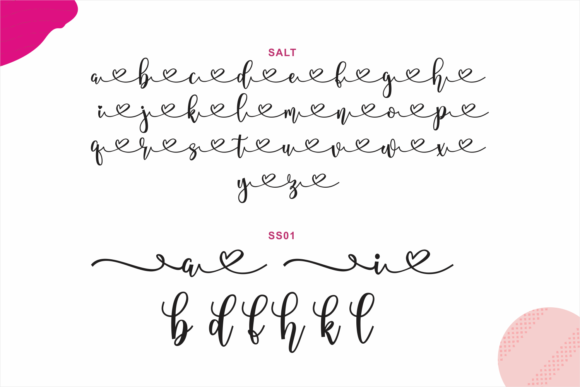 SALT
a b c d e f g h
i j k l m n o p
q r s t u v w x
y z
SS01
a i
b d f h k l